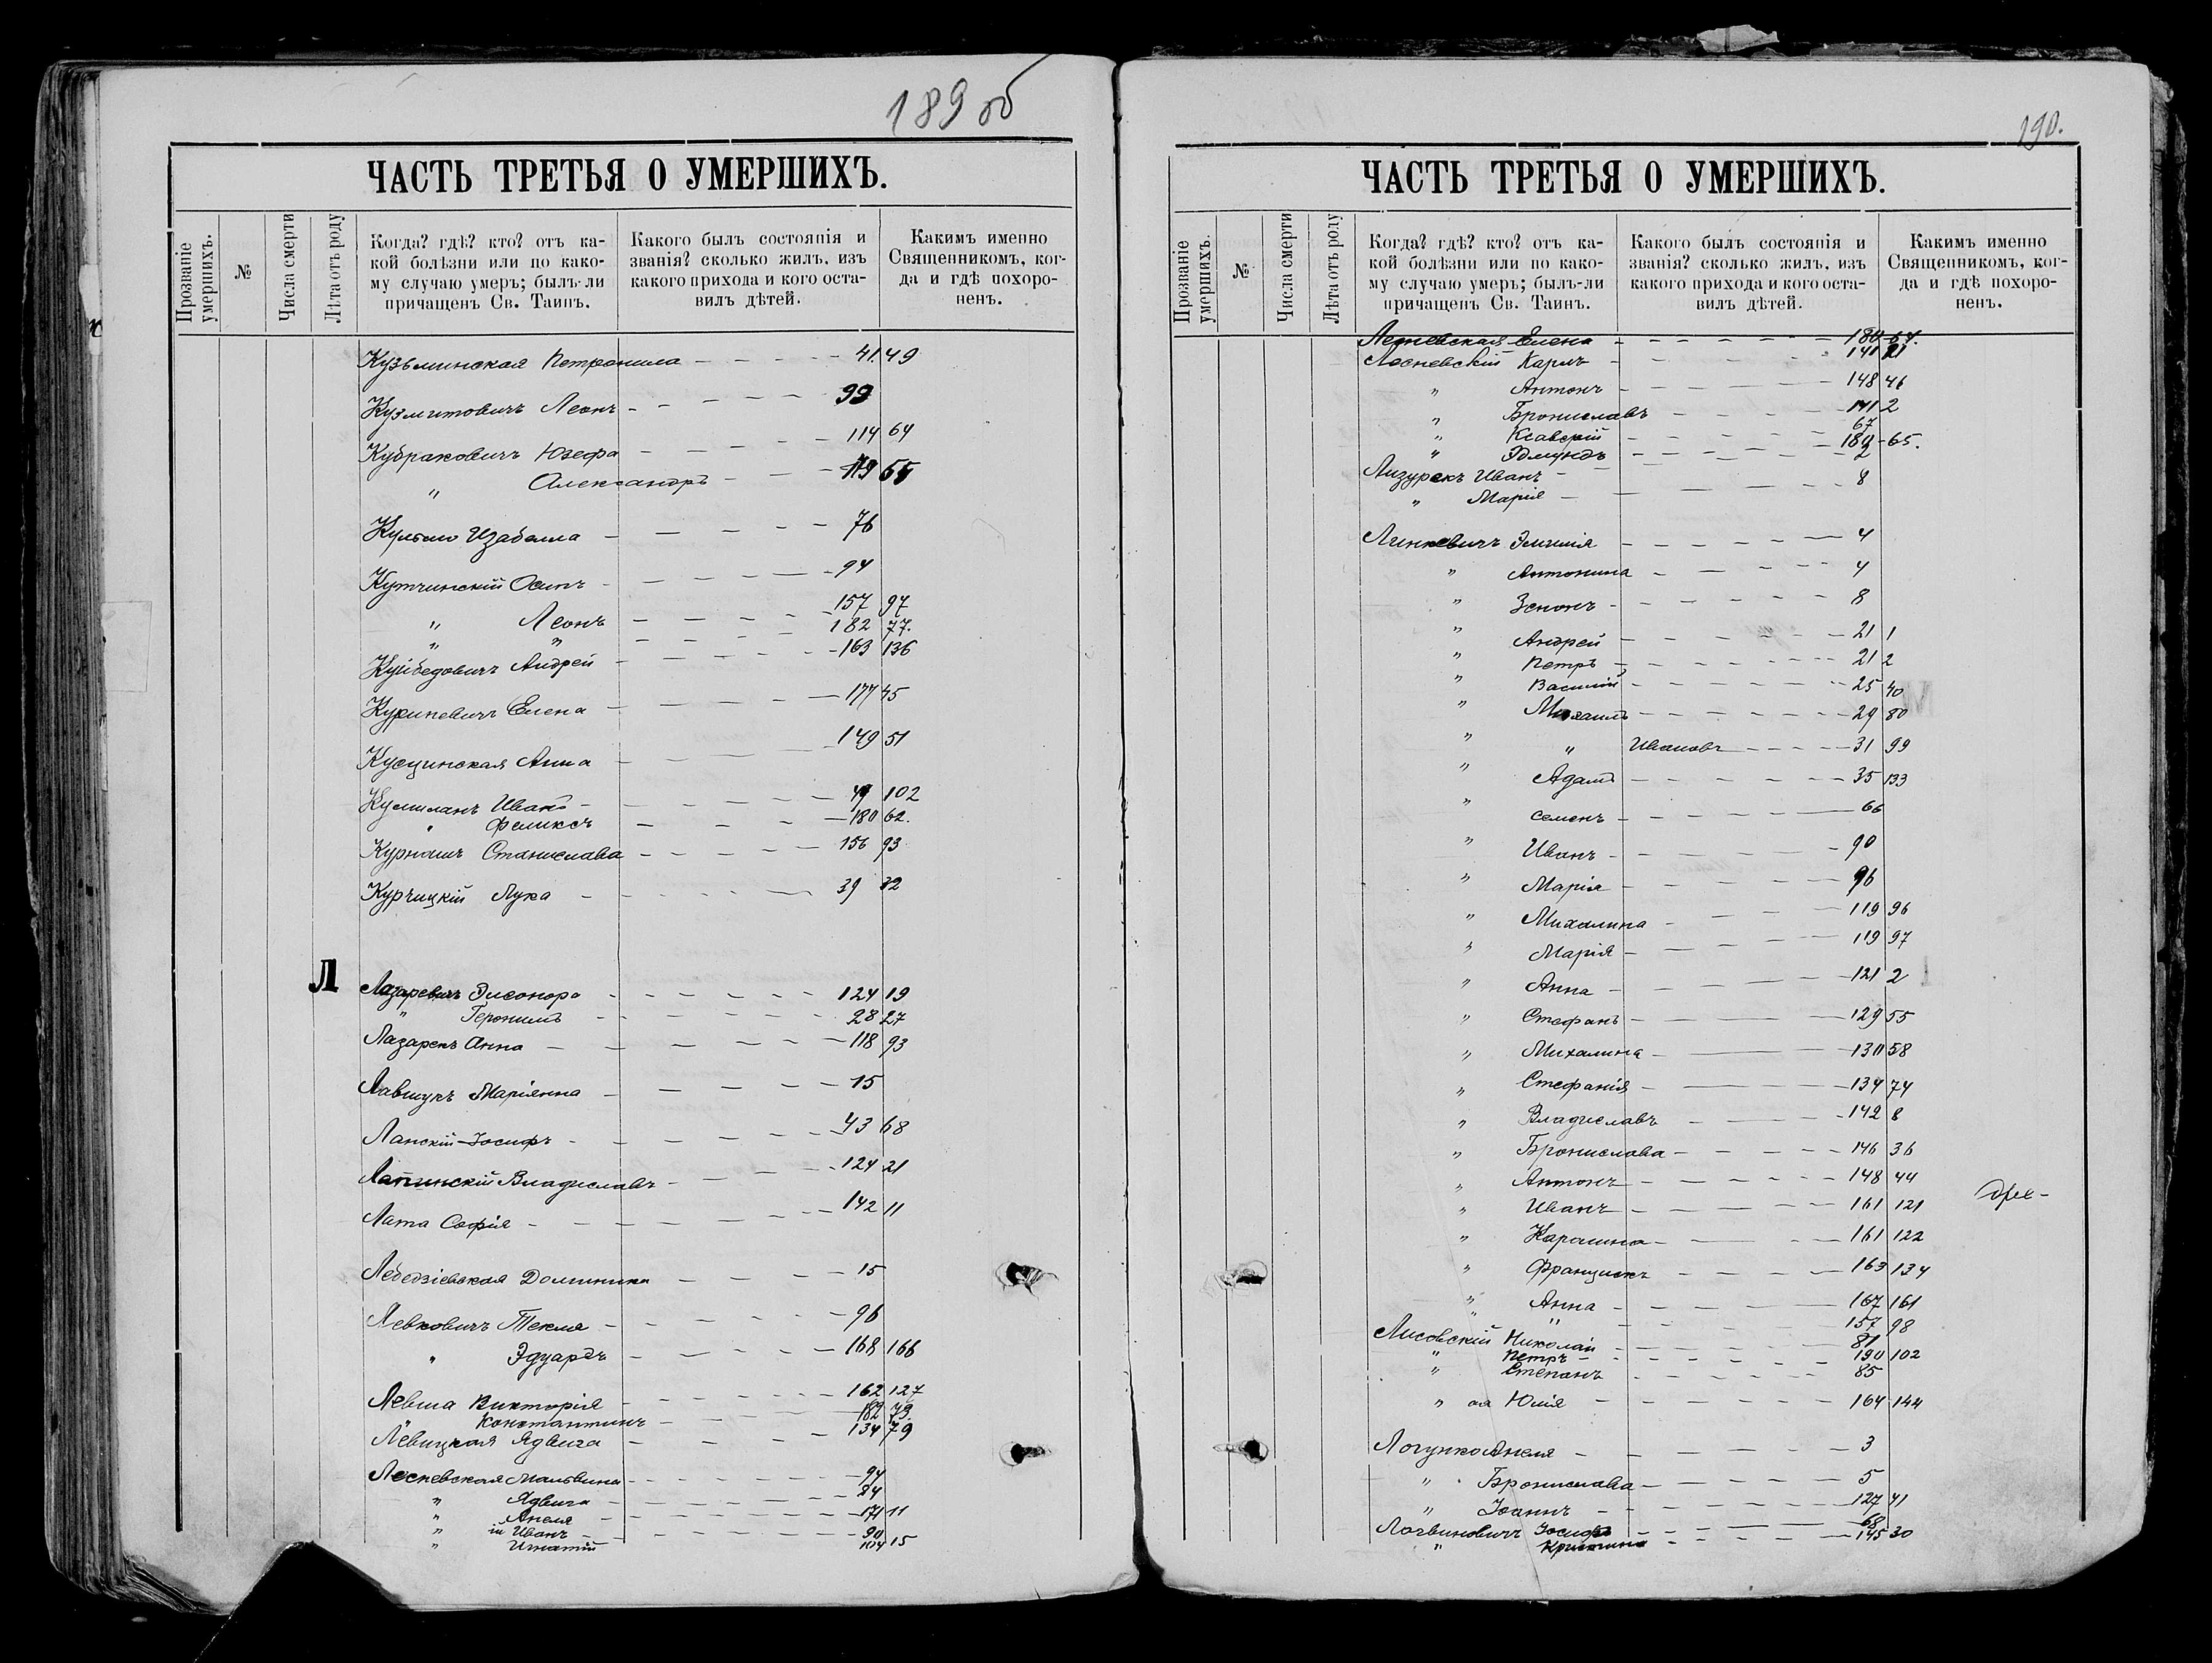 189 об
ЧАСТЬ ТРЕТЬЯ О УМЕРШИХЪ.
Прозваніе умершихъ.
№
Числа смерти
Лѣта отъ роду
Когда? гдѣ? кто? отъ ка-
кой болѣзни или по како-
му случаю умеръ; былъ-ли
причащенъ Св. Таинъ.
Какого былъ состоянія и
званія? сколько жилъ, изъ
какого прихода и кого оста-
вилъ дѣтей.
Какимъ именно
Священникомъ, ког-
да и гдѣ похоро-
ненъ.
Кузьминская Петронила 41 49
Кузмитовичъ Леонъ 99
Кубраковичъ Юзефа 114 64
" Александръ 119
Изабелла 76
Кутчинскій Осипъ 94
" Леонъ 157 97
" " 182 77.
Куйбедовичъ Андрей 163 136
Елена 177 45
Кусцинская Анна 149 51
Иванъ 49 102
" Феликсъ 180 62.
Станислава 156 93
Курчицкій Лука 39 32
Л
Лазаревичъ Элеонора 124 19
" Геронимъ 28 27
Лазарекъ Анна 118 93
Маріянна 15
Ланскій Іосифъ 43 68
Лапинскій Владиславъ 124 21
Лата Софія 142 11
Лебедзіевская Доминика 15
Левковичъ Текля 96
" Эдуардъ 168 166
Левша Викторія 162 127
" Константинъ 182 73.
Левицкая Ядвига 134 79
Лесневская Мальвина 94
" Ядвига 24
" Анеля 171 11
" ій Иванъ 90
" Игнатій 104 15
190.
ЧАСТЬ ТРЕТЬЯ О УМЕРШИХЪ.
Прозваніе умершихъ.
№
Числа смерти
Лѣта отъ роду
Когда? гдѣ? кто? отъ ка-
кой болѣзни или по како-
му случаю умеръ; былъ-ли
причащенъ Св. Таинъ.
Какого былъ состоянія и
званія? сколько жилъ, изъ
какого прихода и кого оста-
вилъ дѣтей.
Какимъ именно
Священникомъ, ког-
да и гдѣ похоро-
ненъ.
Лесневская Елена 180 64.
Лесневскій Карлъ 141
" Антонъ 148 46
" Брониславъ 141 2
" Ксаверій 67
" Эдмундъ 180 65.
Лизурекъ Иванъ 2
" Марія 8
Линкевичъ Эмилія 4
" Антонина 4
" Зенонъ 8
" Андрей 21 1
" Петръ 21 2
" Василій 25 40
" Михаилъ 29 80
" " Ивановъ 31 99
" Адамъ 35 133
" Семенъ 66
" Иванъ 90
" Марія 96
" Михалина 119 96
" Марія 119 97
" Анна 121 2
" Стефанъ 129 55
" Михалина 130 58
" Стефанія 134 74
" Владиславъ 142 8
" Бронислава 146 36
" Антонъ 148 44
" Иванъ 161 121
" Каролина 161 122
" Францискъ 163 134
" Анна 167 161
" " 157 98
Лисовскій Николай 81
" Петръ 190 102
" Степанъ 85
" ая Юлія 164 144
Логунко Анеля 3
" Бронислава 5
" Іоаннъ 127 41
Логвиновичъ Іосифъ 68
" Кристина 145 30